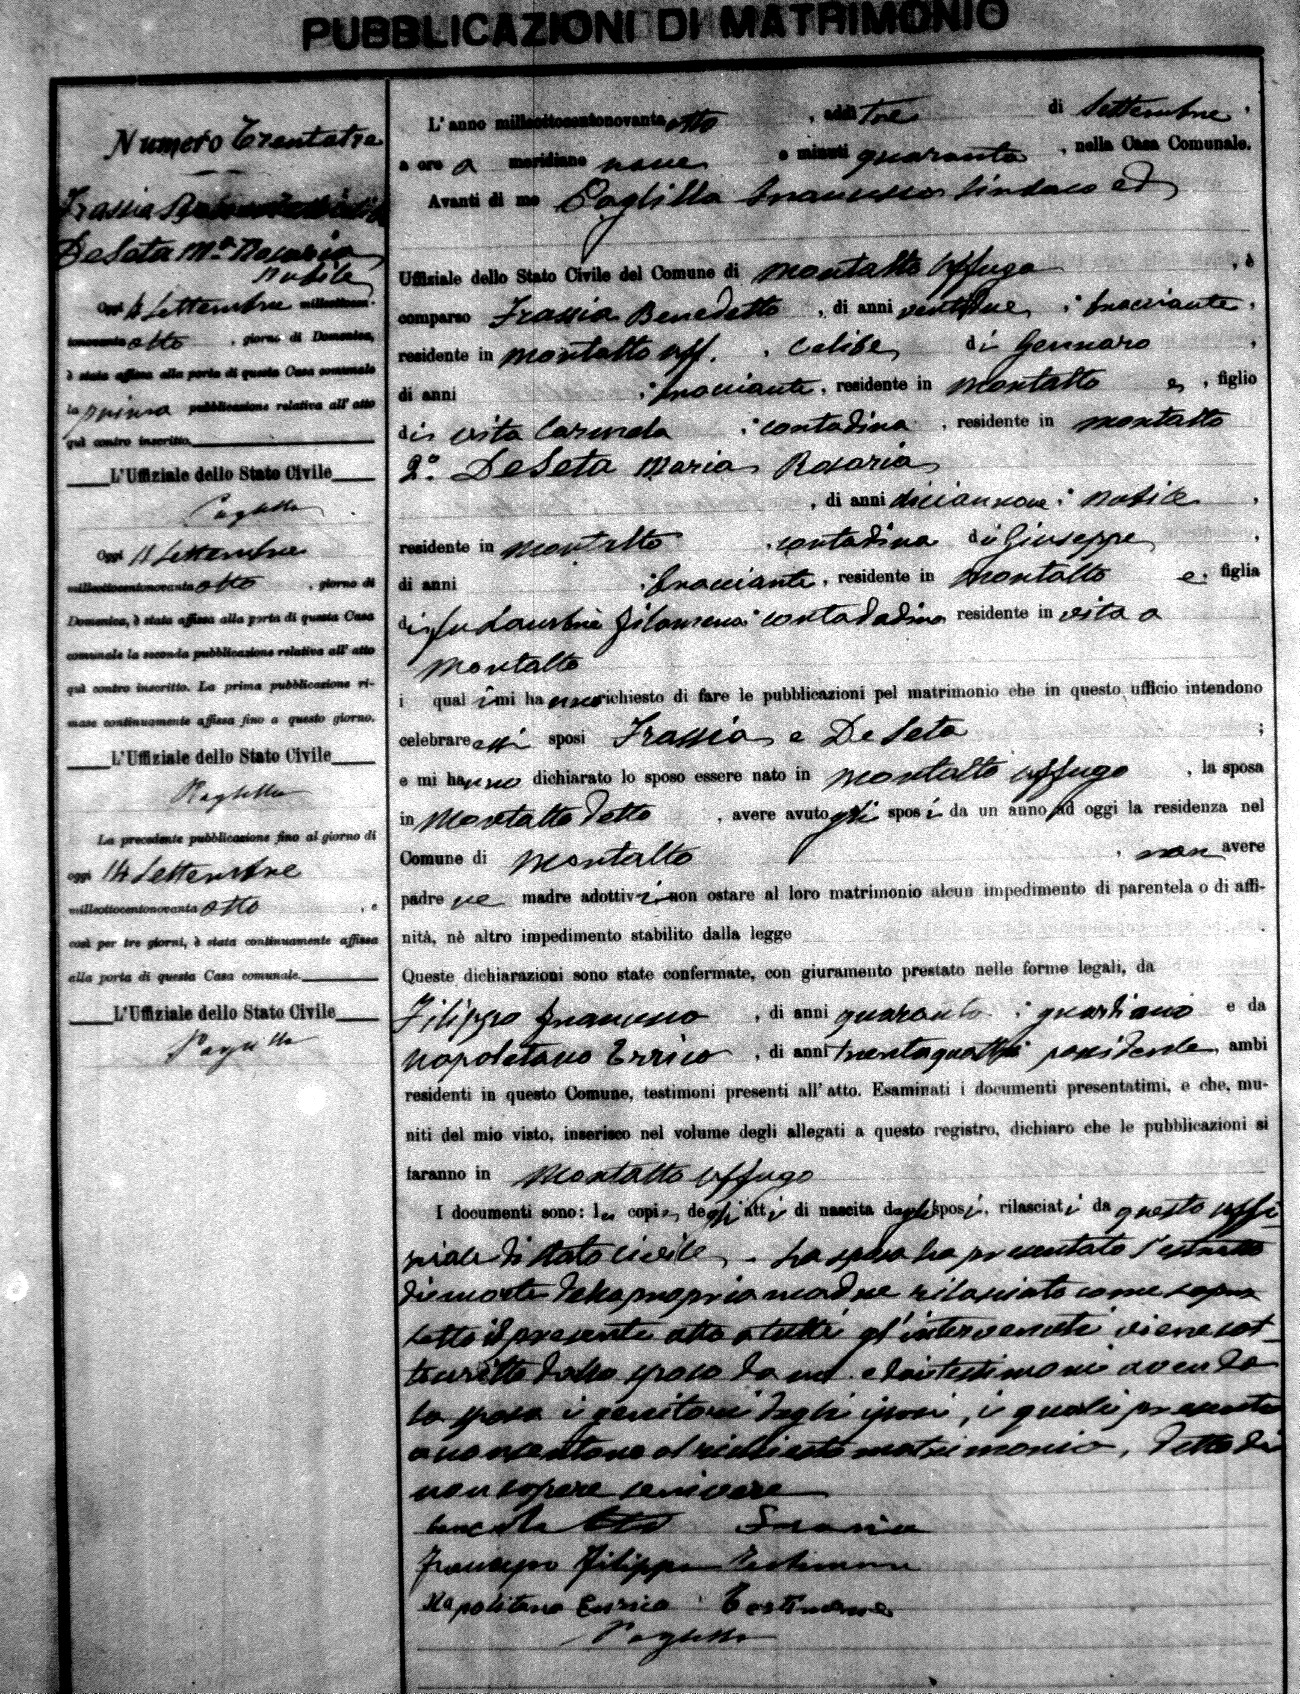 PUBBLICAZIONI DI MATRIMONIO
Numero Trentatre
Frassia
De Seta Mª Rosaria
nubile
Oggi 4 Settembre millottocen-
tonovanta otto, giorno di Domenica,
è stata affissa alla porta di questa Casa comunale
la prima pubblicazione relativa all'atto
quì contro inscritto.
L'Uffiziale dello Stato Civile
Oggi 11 Settembre
millottocentonovanta otto, giorno di
Domenica, è stata affissa alla porta di questa Casa
comunale la seconda pubblicazione relativa all'atto
quì contro inscritto. La prima pubblicazione ri-
mase continuamente affissa fino a questo giorno.
L'Uffiziale dello Stato Civile
La precedente pubblicazione fino al giorno di
oggi 14 Settembre
millottocentonovanta otto, e
così per tre giorni, è stata continuamente affissa
alla porta di questa Casa comunale.
L'Uffiziale dello Stato Civile
L'anno milleottocentonovanta otto, addì tre di Settembre,
a ore a meridiane nove e minuti quaranta, nella Casa Comunale.
Avanti di me Paglilla Francesco Sindaco ed
Uffiziale dello Stato Civile del Comune di Montalto Uffugo, è
comparso Frassia Benedetto, di anni ventidue, bracciante,
residente in Montalto Uff., celibe, di Gennaro,
di anni bracciante, residente in Montalto e, figlio
di vita Carmela contadina, residente in Montalto
2º De Seta Maria Rosaria
, di anni diciannove, nubile,
residente in Montalto, contadina di Giuseppe,
di anni bracciante, residente in Montalto e, figlia
di fu Filomena contadadina residente in vita a
Montalto
i quali mi hanno richiesto di fare le pubblicazioni pel matrimonio che in questo ufficio intendono
celebrare essi sposi Frassia e De Seta;
e mi hanno dichiarato lo sposo essere nato in Montalto Uffugo, la sposa
in Montalto detto, avere avuto gli sposi da un anno ad oggi la residenza nel
Comune di Montalto, non avere
padre ne madre adottivi non ostare al loro matrimonio alcun impedimento di parentela o di affi-
nità, nè altro impedimento stabilito dalla legge
Queste dichiarazioni sono state confermate, con giuramento prestato nelle forme legali, da
Filippo Francesco, di anni quaranta, guardiano e da
Napoletano Errico, di anni trentaquattro possidente, ambi
residenti in questo Comune, testimoni presenti all'atto. Esaminati i documenti presentatimi, e che, mu-
niti del mio visto, inserisco nel volume degli allegati a questo registro, dichiaro che le pubblicazioni si
faranno in Montalto Uffugo
I documenti sono: le copie degli atti di nascita degli sposi, rilasciati da questo uffi-
ziale di stato civile. La sposa ha presentato l'estratto
di morte della propria madre rilasciato come sopra
letto il presente atto a tutti gl'intervenuti viene sot-
toscritto dallo sposo da me e dai testimoni avendo
la sposa i genitori degli sposi, i quali presenti
acconsentono al richiesto matrimonio, detto di
non sapere scrivere
Francesco Filippo Testimone
Napolitano Enrico Testimone